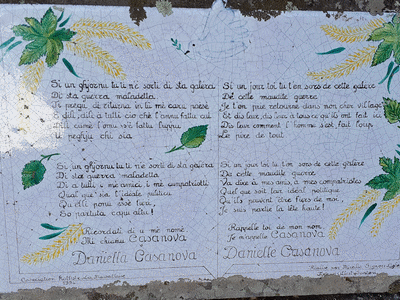 Si un ghjornu tu ti n'è sorti di sta galera
Di sta guerra maladetta
Ti pregu di riturnà in lu mè caru paese
È dilli, dilli à tutti ciò chè l'annu fattu quì
Dilli cumè l'omu s'hè fattu lupu
U peghju chì sia

Si un ghjornu tu ti n'è sorti di sta galera
Di sta guerra maladetta
Dì à tutti i me amici, i mè cumpatriotti
Qual que sia l'ideale pulitica
Ch'elli ponu esse fieri
So partutu capu altu!

Ricordati di u mè nome,
Mi chjamu Casanova
Daniella Casanova

Si un jour toi tu t'en sors de cette galère
De cette maudite guerre
Je t'en prie retourne dans mon cher village
Et dis leur, dis leur à tous ce qu'ils ont fait ici
Dis leur comment l'homme s'est fait loup
Le pire de tout

Si un jour toi, tu t'en sors de cette galère
De cette maudite guerre
Va dire à mes amis, à mes compatriotes
Quel que soit leur idéal politique
Qu'ils peuvent être fiers de moi,
Je suis partie la tête haute!

Rappelle toi de mon nom,
Je m'appelle Casanova
Danielle Casanova